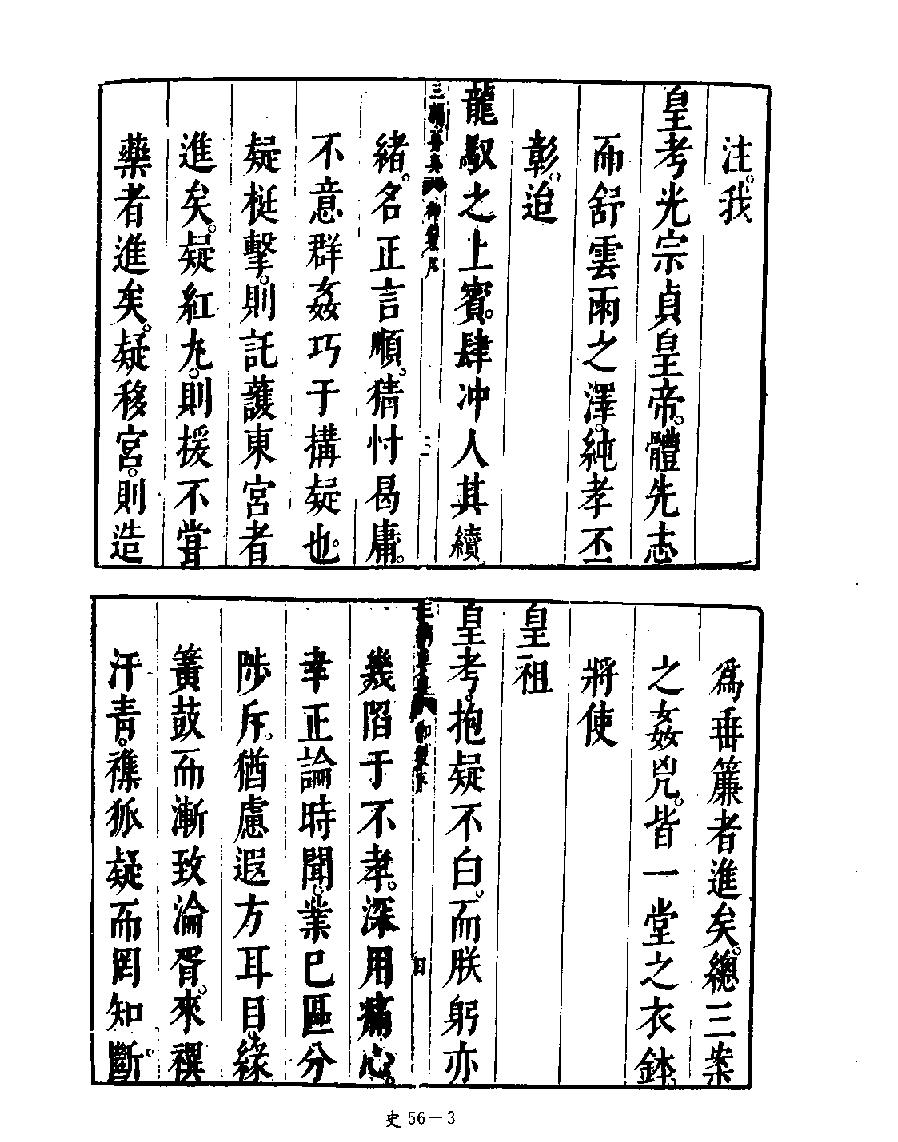 注。我
皇考光宗貞皇帝。體先志
而舒雲雨之澤。純孝丕
彰。迨
龍馭之上賓。肆冲人其續
三朝要典 御製序 三
緒。名正言順。猜忖曷庸。
不意群姦巧于搆疑也。
疑梃擊。則託護東宮者
進矣。疑紅丸。則援不嘗
藥者進矣。疑移宮。則造
爲垂簾者進矣。總三案
之姦兇。皆一堂之衣鉢。
將使
皇祖
皇考。抱疑不白。而朕躬亦
三朝要典 御製序 四
幾陷于不孝。深用痛心。
幸正論時聞。業已區分
陟斥。猶慮遐方耳目。緣
簧鼓而漸致淪胥。來禩
汗青。襍狐疑而罔知斷。
史 56－3